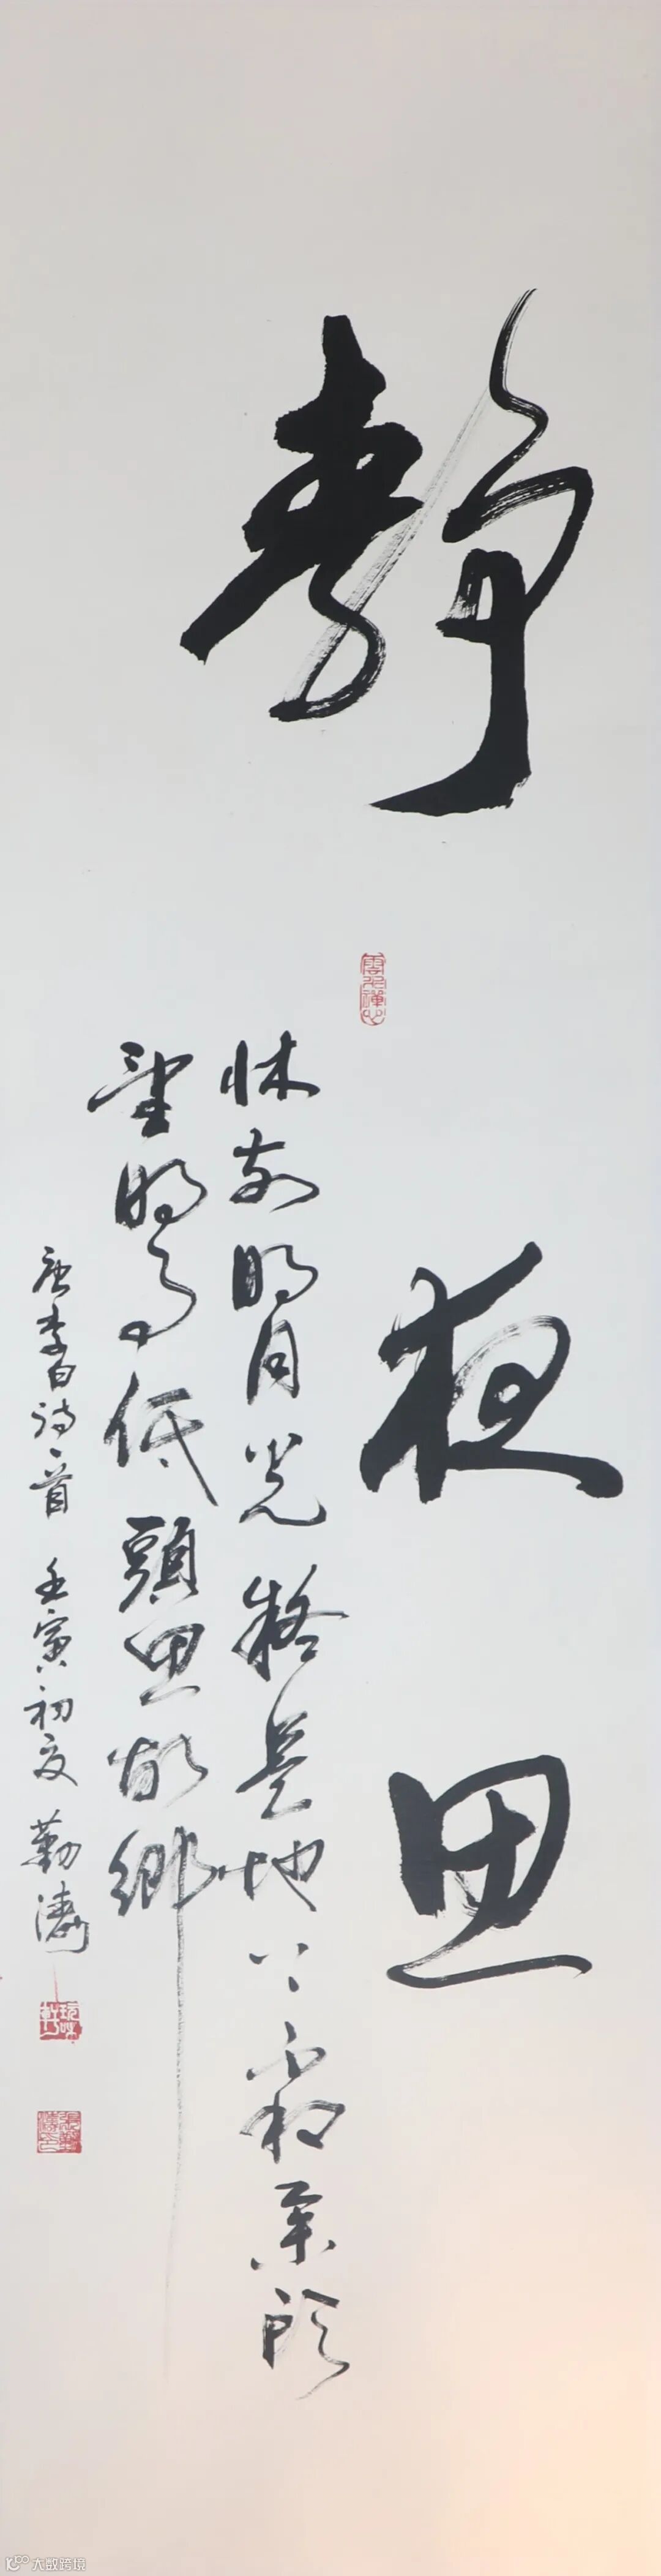 靜夜思
牀前明月光疑是地上霜舉頭
望明月低頭思故鄉
唐李白詩一首 壬寅初夏 勤濤
大数跨境